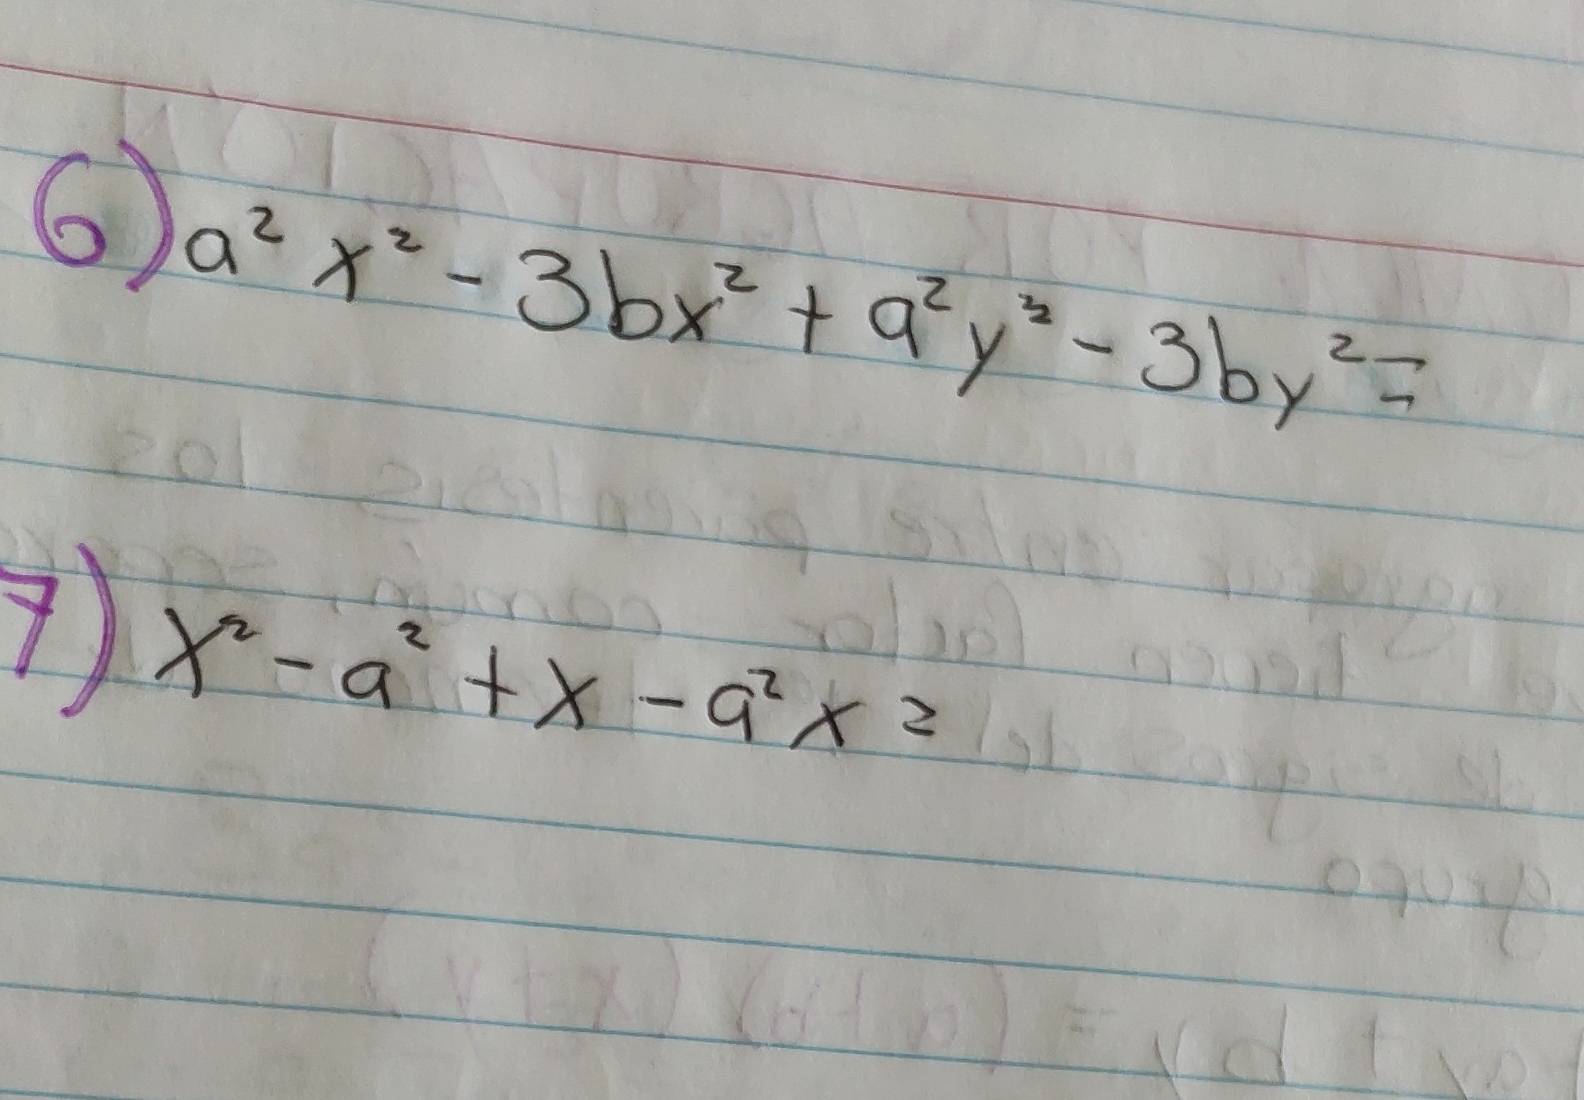 6) a² x² - 3bx² + a²y² - 3by² =
7) x² - a² + x - a²x =